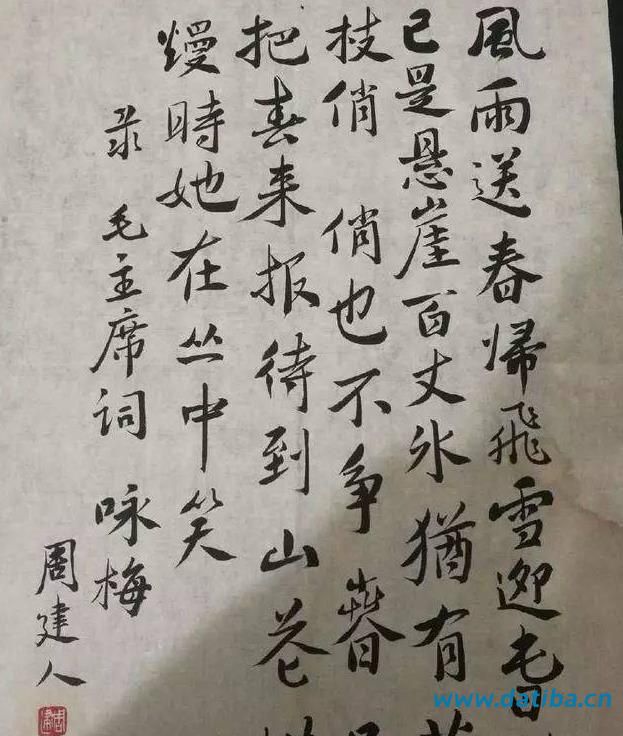 風雨送春帰飛雪迎春
已是悬崖百丈氷猶有
枝俏 俏也不争春
把春来报待到山花
熳時她在丛中笑
录毛主席词 咏梅
周建人
www.datiba.cn